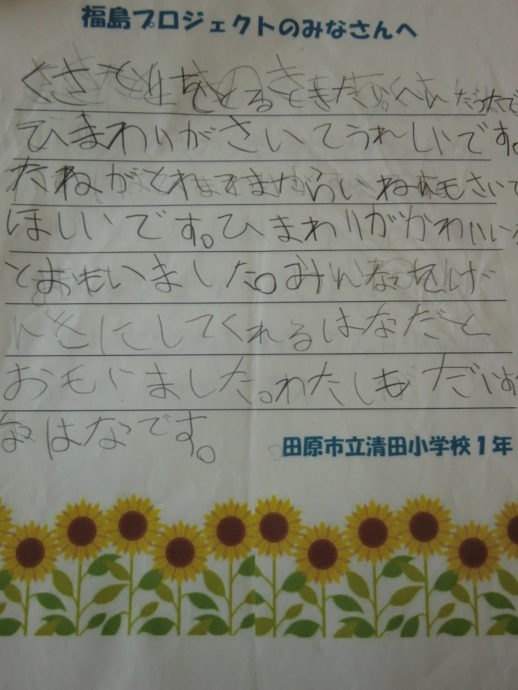 福島プロジェクトのみなさんへ
くさとりをとるときたいへんだったで
ひまわりがさいてうれしいです。
たねがとれてますからいねんもさいて
ほしいです。ひまわりがかわいい
とおもいました。みんなをげ
んきにしてくれるはなだと
おもいました。わたしもだいす
なはなです。
田原市立清田小学校1年